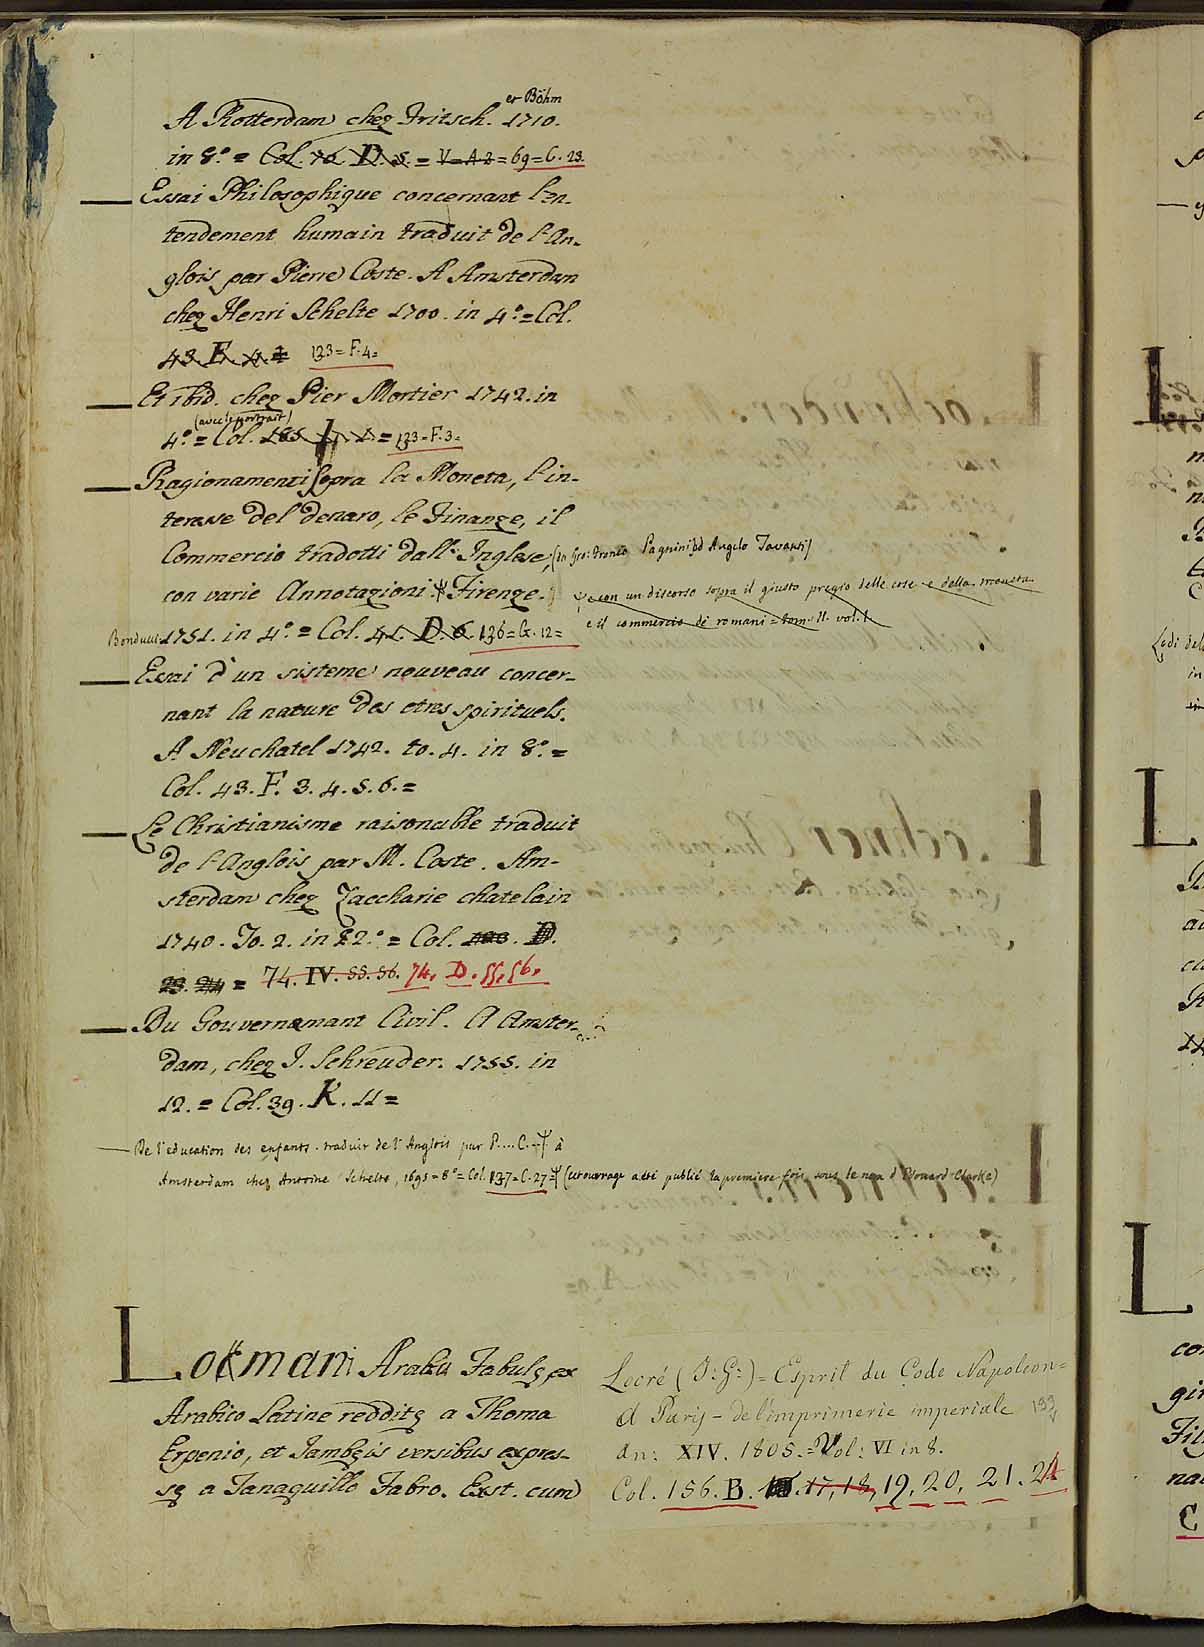 et Böhm
A Rotterdam chez Fritsch. 1710.
in 8.° = Col. 76. D. 5. = V = A 2 = 69 = C. 23.
Essai Philosophique concernant l'en-
tendement humain traduit de l'An-
glois par Pierre Coste. A Amsterdam
chez Henri Schelte 1700. in 4.° = Col.
43. F. 123 = F. 4 =
Et ibid. chez Pier Mortier 1742. in
(avec le portrait)
4.° = Col. 185 = 123 = F. 3 =
Ragionamenti sopra la Moneta, l'in-
teresse del denaro, le Finanze, il
Commercio tradotti dall' Inglese, Pagnini ed Angelo Tavanti)
con varie Annotazioni Firenze.
e con un discorso sopra il giusto pregio delle cose e della moneta
e il commercio de romani = tom. II. vol. 1
Bonducci 1751. in 4.° = Col. 41. D. 6. 136 = G. 12 =
Essai d'un sisteme nouveau concer-
nant la nature des etres spirituels.
A Neuchatel 1742. to. 4. in 8.° =
Col. 43. F. 3. 4. 5. 6. =
Le Christianisme raisonable traduit
de l'Anglois par M. Coste. Am-
sterdam chez Zaccharie chatelain
1740. To. 2. in 12.° = Col. D.
23. 24 = 74. IV. 55. 56. 74. D. 55. 56.
Du Gouvernemant Civil. A Amster-
dam, chez J. Schreuder. 1755. in
12. = Col. 39. K. 11 =
De l'education des enfants. traduit de l'Anglois par P.... C. à
Amsterdam chez Antoine Schelte, 1695 = 8° = Col. 137 = C. 27 = (cet ouvrage a eté publié la premiere fois sous le nom d'Edouard Clarke)
Lokmani Arabis Fabulę ex
Arabico Latine redditę a Thoma
Erpenio, et Jambęis versibus expres-
sę a Tanaquillo Fabro. Exst. cum
Locré (J: G:) = Esprit du Code Napoleon =
A Paris - de l'imprimerie imperiale
An: XIV. 1805. = Vol: VI in 8.
Col. 156. B. 17, 18, 19, 20, 21. 24